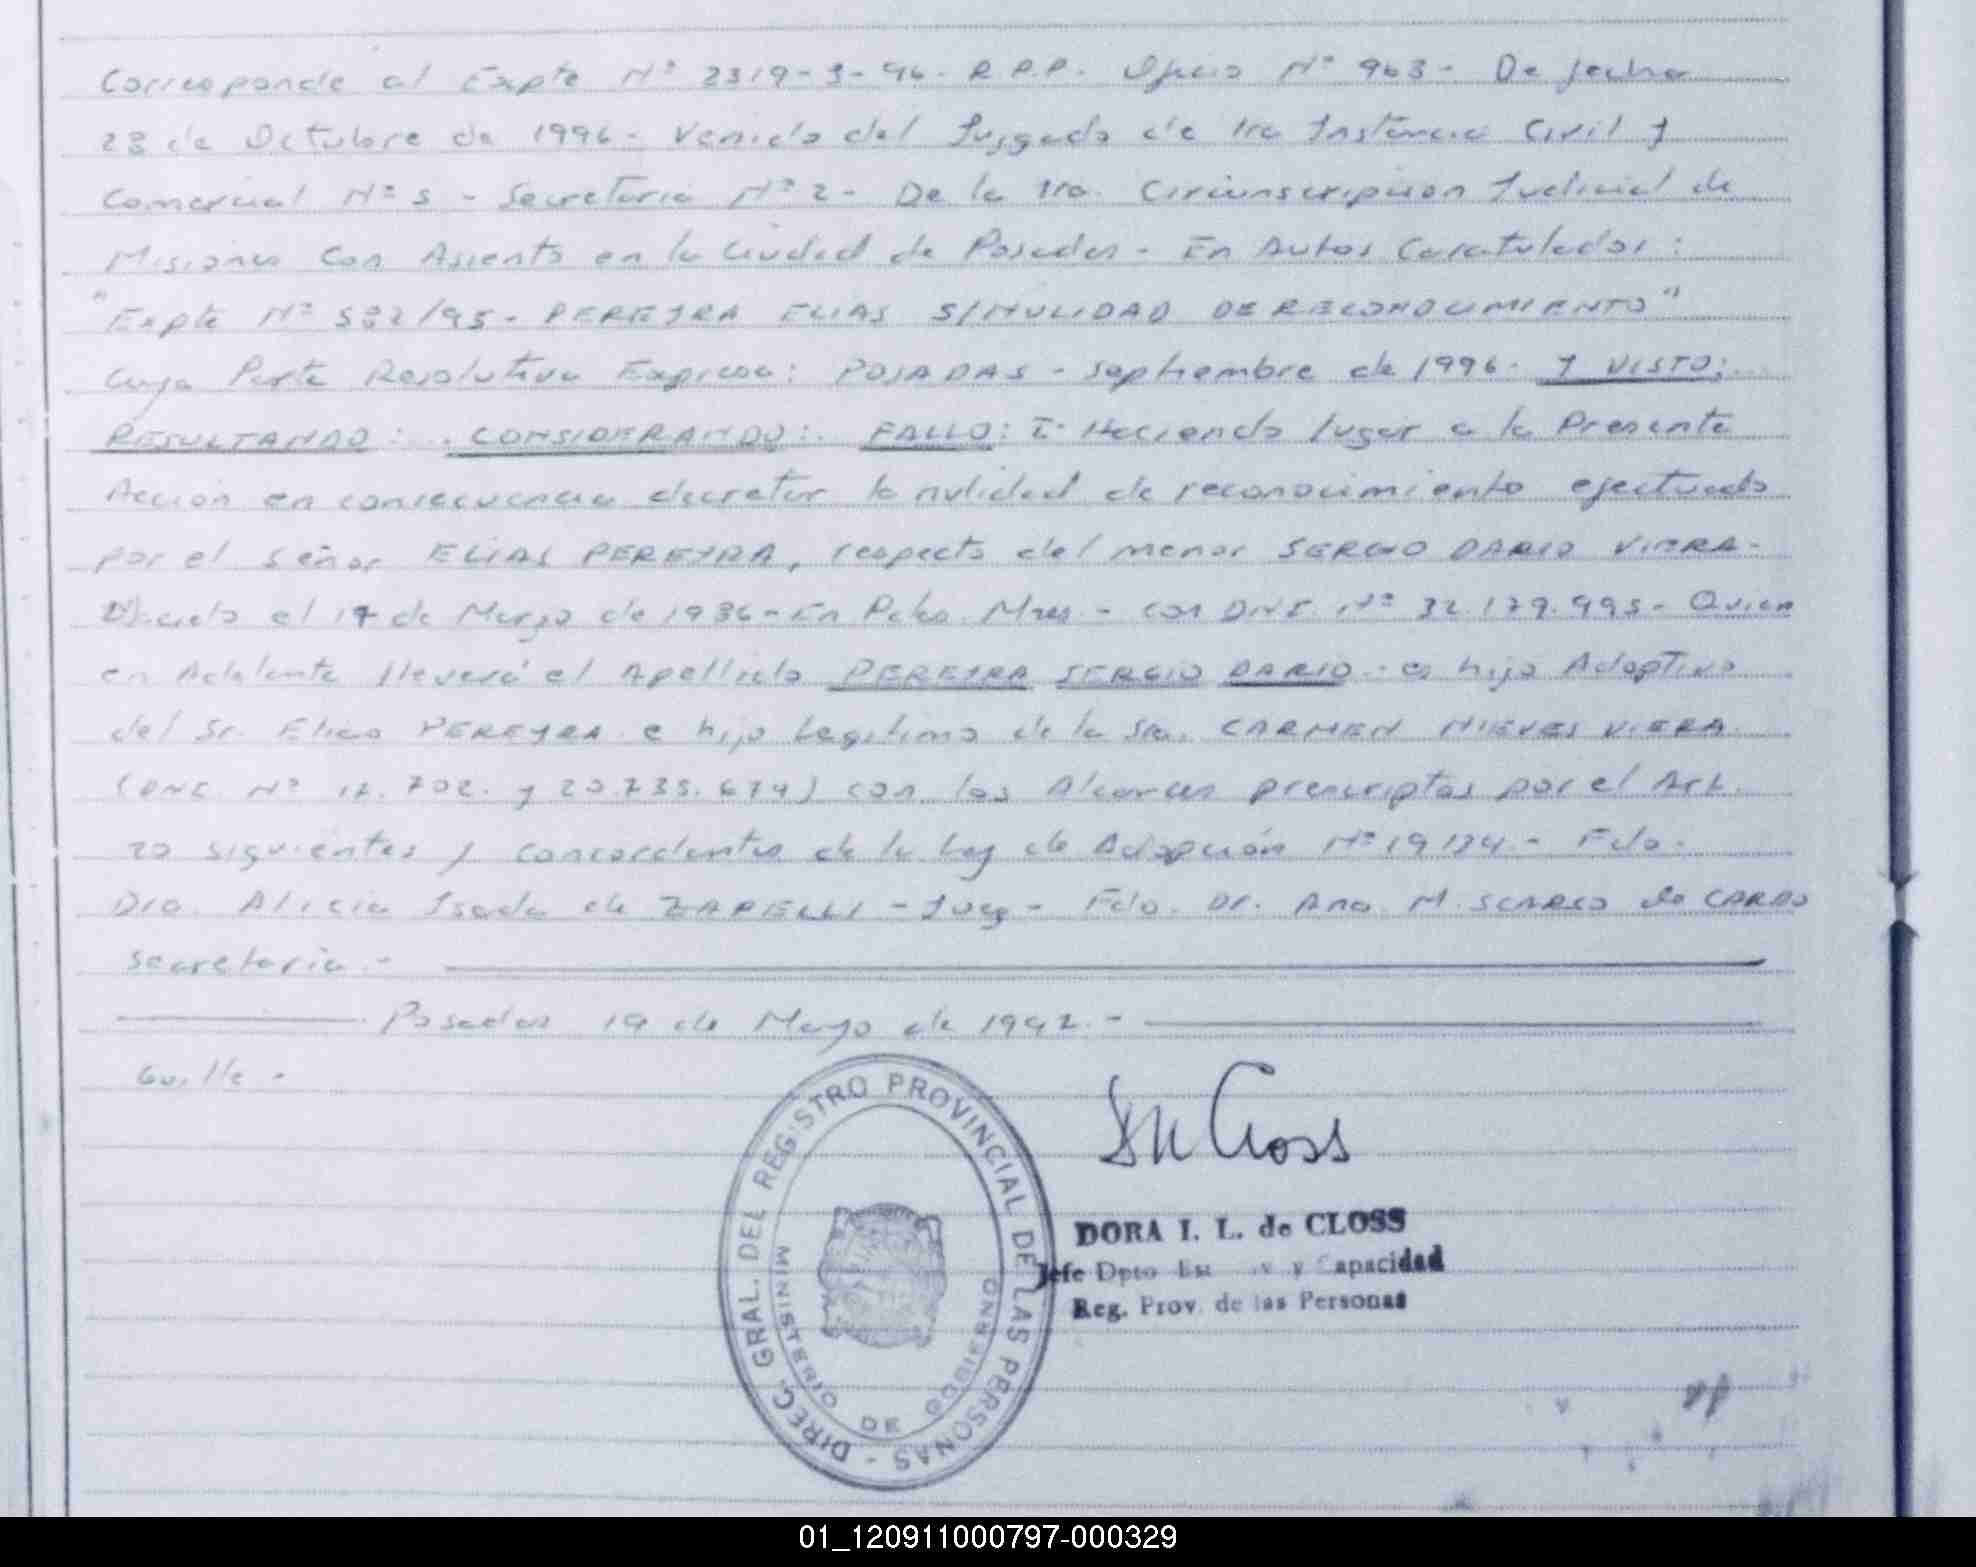 Corresponde al Expte Nº 2319-3-96- R.P.P. Oficio Nº 963- De fecha
23 de Octubre de 1996- Venido del Juzgado de 1ra Instancia Civil y
Comercial Nº 5 - Secretaria Nº 2- De la 1ra. Circunscripcion Judicial de
Misiones Con Asiento en la Ciudad de Posadas - En Autos Caratulados:
"Expte Nº 532/95- PEREYRA ELIAS S/NULIDAD DE RECONOCIMIENTO"
Cuya Parte Resolutiva Expresa: POSADAS - Septiembre de 1996- Y VISTO:
RESULTANDO: CONSIDERANDO: FALLO: I- Haciendo lugar a la Presente
Acción en consecuencia decretar la nulidad de reconocimiento efectuado
por el Señor ELIAS PEREYRA, respecto del menor SERGIO DARIO VIERA-
Nacido el 17 de Marzo de 1986- En Mnes - con DNI. Nº 32.179.995- Quien
en Adelante llevará el Apellido PEREYRA SERGIO DARIO - es hijo Adoptivo
del Sr. Elias PEREYRA e hijo Legitimo de la Sra. CARMEN NIEVES VIERA
(DNI. Nº 702. y 20.735.674) con los Alcances prescriptos por el Art.
20 siguientes y concordantes de la Ley de Adopción Nº 19134.- Fdo.
Dra. Alicia Isada de ZAPELLI - Juez - Fdo. Dr. Ana. M. de CARDO
Secretaria.-
Posadas 19 de Mayo de 1992.-
Guille -
DIREC. GRAL. DEL REGISTRO PROVINCIAL DE LAS PERSONAS -
MINISTERIO DE GOBIERNO
DM Closs
DORA I. L. de CLOSS
Jefe Dpto y Capacidad
Reg. Prov. de las Personas
01_120911000797-000329